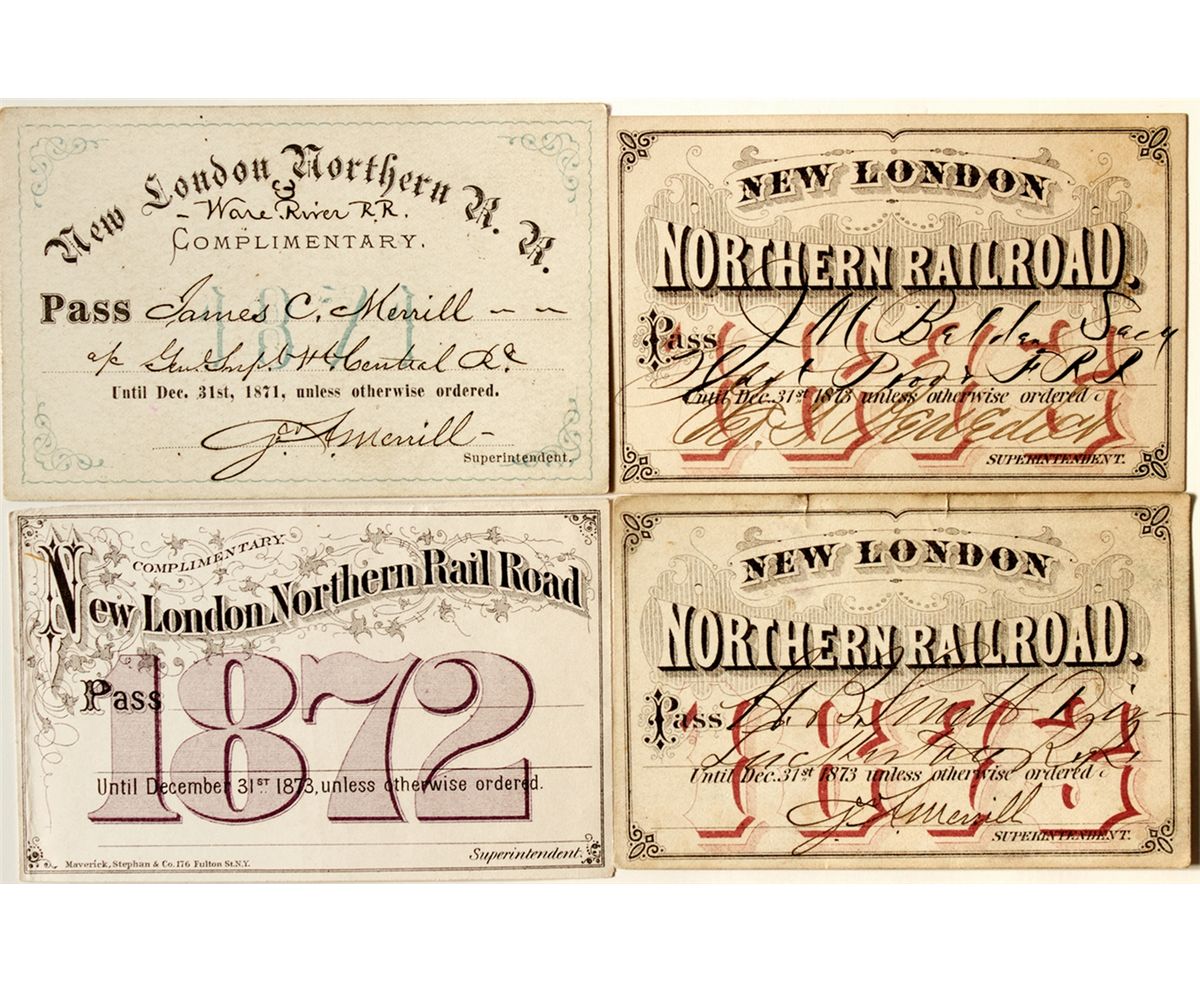 New London Northern R. R.
&
- Ware River R.R.
COMPLIMENTARY.
1871
Pass James C. Merrill - -
Central
Until Dec. 31st, 1871, unless otherwise ordered.
Merrill -
Superintendent.
NEW LONDON
NORTHERN RAILROAD.
1873
Pass J M Belden Secy
Until Dec. 31st 1873 unless otherwise ordered
SUPERINTENDENT.
COMPLIMENTARY
New London Northern Rail Road
1872
Pass
Until December 31ST 1873, unless otherwise ordered.
Superintendent.
Maverick, Stephan & Co. 176 Fulton St. N.Y.
NEW LONDON
NORTHERN RAILROAD.
1873
Pass
Until Dec. 31st 1873 unless otherwise ordered
Merrill
SUPERINTENDENT.